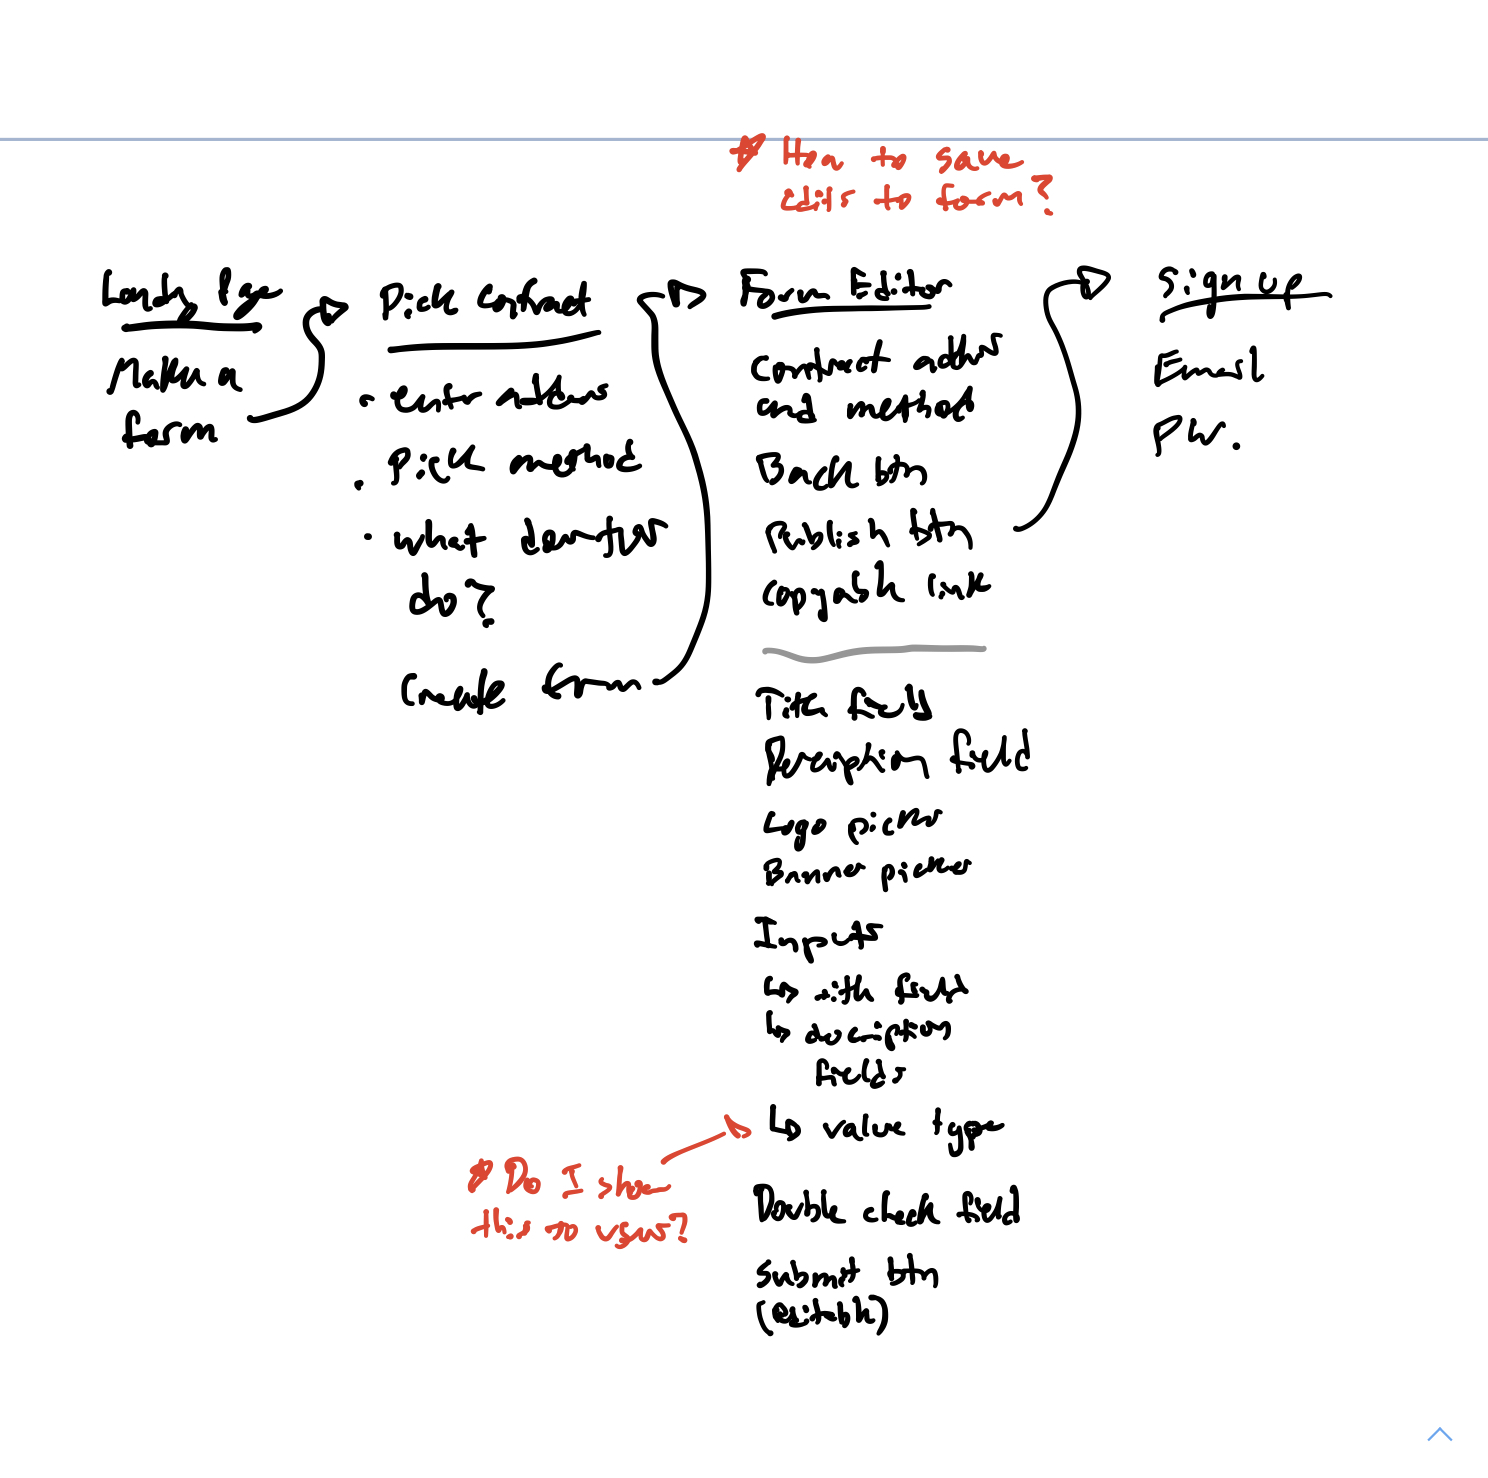 * How to save
edits to form?
Landing Page
Make a
form
Pick Contract
• enter address
• Pick method
• what
do?
Create form
Form Editor
Contract address
and method
Back btn
Publish btn
Copyable link
Title field
Description field
Logo picker
Banner picker
Inputs
↳ title field
↳ description
fields
↳ value type
* Do I show
this to users?
Double check field
Submit btn
(editable)
Sign up
Email
PW.